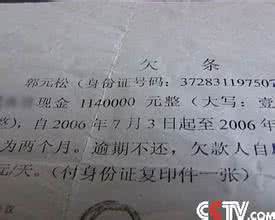 欠 条
郭元松（身份证号码：372831197507
现金 1140000 元整（大写：壹
整），自 2006 年 7 月 3 日起至 2006 年
为两个月。逾期不还，欠款人自
元/天。（付身份证复印件一张）
CCTV.com